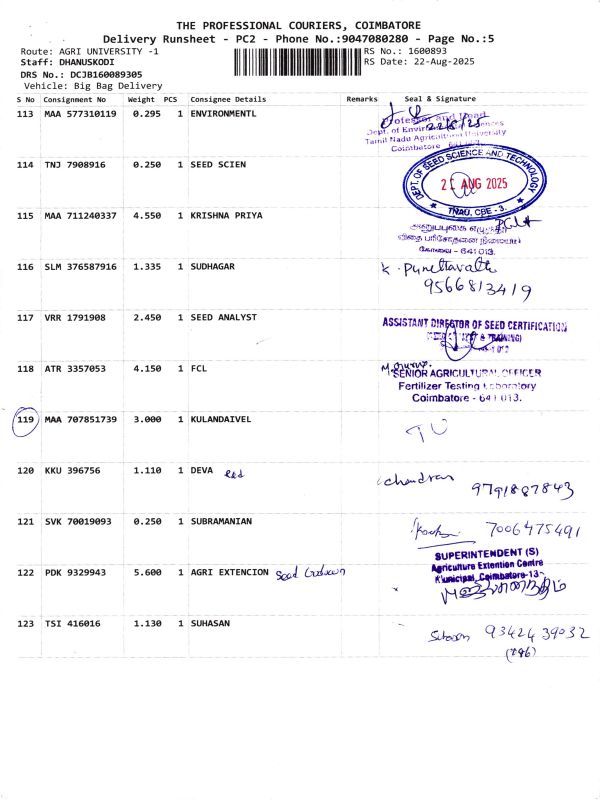 THE PROFESSIONAL COURIERS, COIMBATORE
Delivery Runsheet - PC2 - Phone No.:9047080280 - Page No.:5
Route: AGRI UNIVERSITY -1 RS No.: 1600893
Staff: DHANUSKODI RS Date: 22-Aug-2025
DRS No.: DCJB160089305
Vehicle: Big Bag Delivery
S No Consignment No Weight PCS Consignee Details Remarks Seal & Signature
113 MAA 577310119 0.295 1 ENVIRONMENTL
Professor and Head
22/8/25
Dept. of Environmental Sciences
Tamil Nadu Agricultural University
Coimbatore
114 TNJ 7908916 0.250 1 SEED SCIEN
DEPT. OF SEED SCIENCE AND TECHNOLOGY
AUG 2025
TNAU, CBE - 3.
115 MAA 711240337 4.550 1 KRISHNA PRIYA
விதை பரிசோதனை நிலையம்
கோவை - 641 013.
116 SLM 376587916 1.335 1 SUDHAGAR
K.
9566813419
117 VRR 1791908 2.450 1 SEED ANALYST
ASSISTANT DIRECTOR OF SEED CERTIFICATION
& TRAINING)
118 ATR 3357053 4.150 1 FCL
SENIOR AGRICULTURAL OFFICER
Fertilizer Testing Laboratory
Coimbatore - 641 013.
119 MAA 707851739 3.000 1 KULANDAIVEL
120 KKU 396756 1.110 1 DEVA
chandran
9791887843
121 SVK 70019093 0.250 1 SUBRAMANIAN
7006475491
SUPERINTENDENT (S)
Agriculture Extention Centre
Municipal, Coimbatore-13
122 PDK 9329943 5.600 1 AGRI EXTENCION Seed Godown
123 TSI 416016 1.130 1 SUHASAN
Suhasan 9342439032